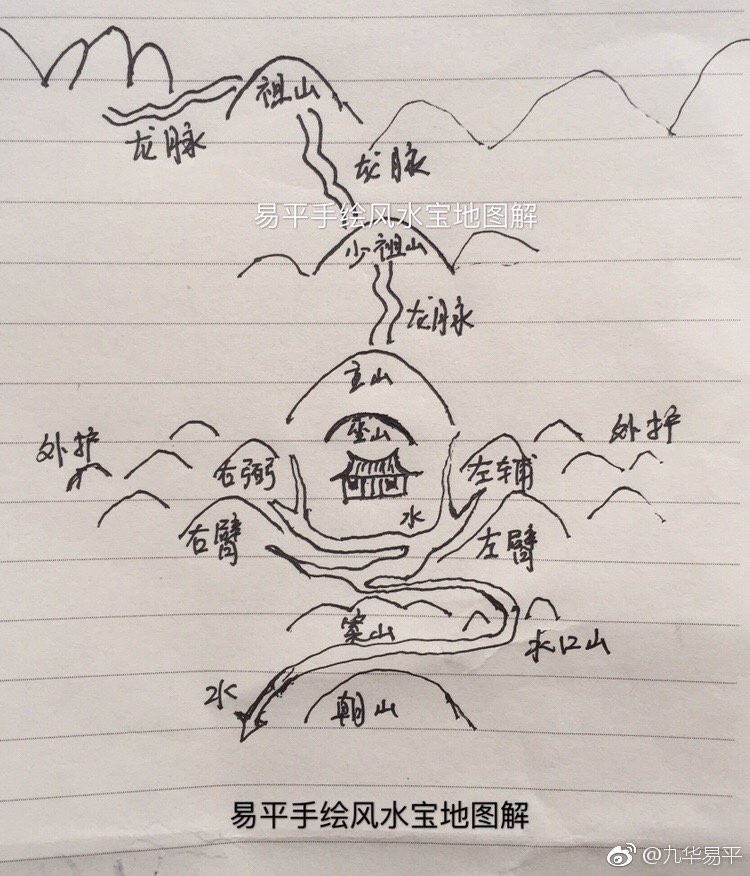 祖山
龙脉
龙脉
易平手绘风水宝地图解
少祖山
龙脉
主山
坐山
外护
外护
右弼
左辅
水
右臂
左臂
案山
水口山
水
朝山
易平手绘风水宝地图解
@九华易平